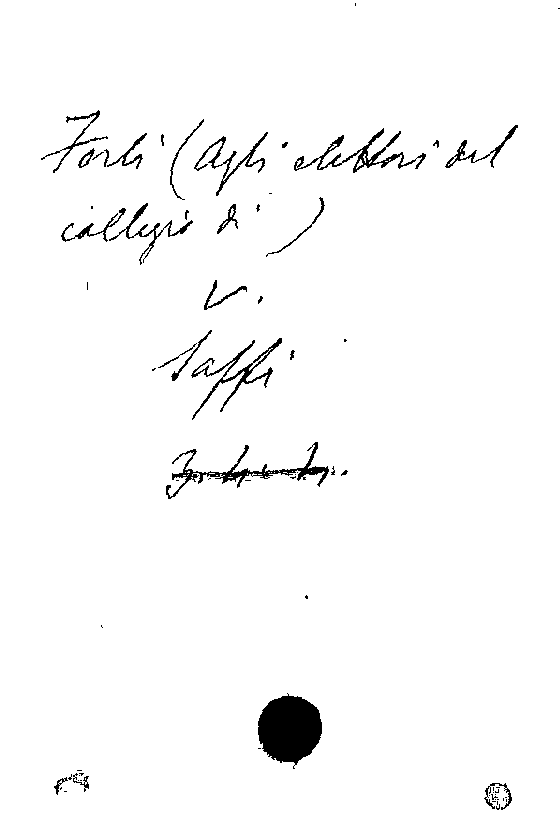 Forlì (Agli elettori del
collegio di)
V.
Saffi